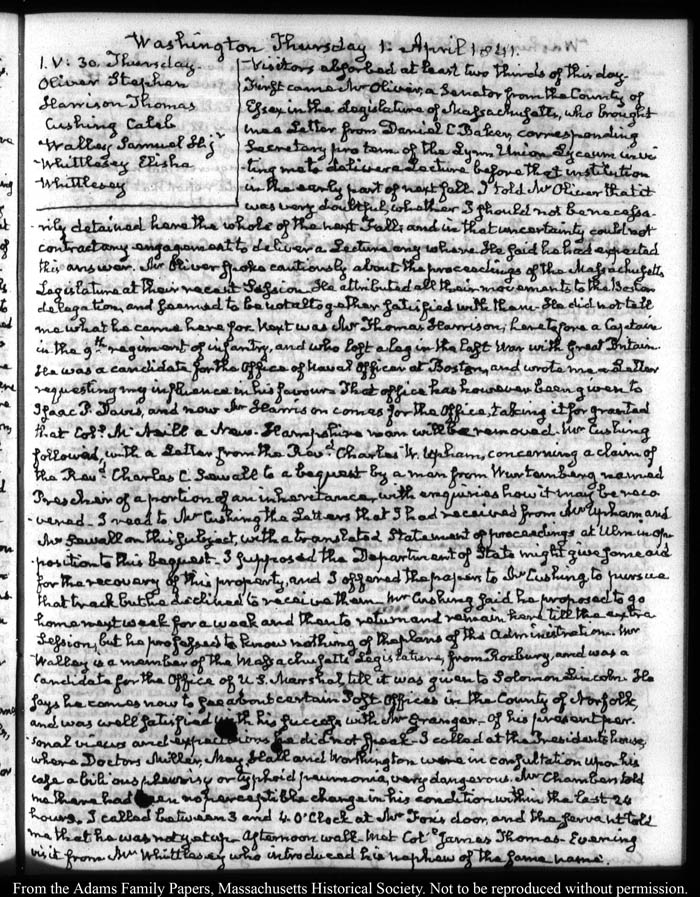 Washington Thursday 1. April 1841.
I. V: 30. Thursday
Oliver Stephen
Harrison Thomas
Cushing Caleb
Walley Samuel H. jr
Whittlesey Elisha
Whittlesey
Visitors absorbed at least two thirds of this day.
First came Mr Oliver, a Senator from the County of
Essex in the Legislature of Massachusetts, who brought
me a Letter from Daniel C Baker, corresponding
Secretary pro tem. of the Lynn Union Lyceum invi-
ting me to deliver a Lecture before that institution
in the early part of next fall. I told Mr Oliver that it
was very doubtful, whether I should not be necessa-
rily detained here the whole of the next Fall; and in that uncertainty could not
contract any engagement to deliver a Lecture any where. He said he had expected
this answer. Mr Oliver spoke cautiously about the proceedings of the Massachusetts
Legislature at their recent Session. He attributed all their movements to the Boston
delegation, and seemed to be not altogether satisfied with them. He did not tell
me what he came here for. Next was Mr Thomas Harrison, heretofore a Captain
in the 9th regiment of infantry, and who lost a leg in the last War with Great Britain.
He was a candidate for the Office of Naval Officer at Boston, and wrote me a Letter
requesting my influence in his favour. That office has however been given to
Isaac P. Davis, and now Mr Harrison comes for the Office, taking it for granted
that Coll. McNeill a New-Hampshire man will be removed. Mr Cushing
followed, with a Letter from the Revd. Charles W. Upham, concerning a claim of
the Revd. Charles C. Sewall to a bequest by a man from Wurtemberg named
Prescher of a portion of an inheritance, with enquiries how it may be reco-
vered. I read to Mr Cushing the Letters that I had received from Mr Upham and
Mr Sewall on this subject, with a translated Statement of proceedings at Ulm in op-
position to this Bequest. I supposed the Department of State might give some aid
for the recovery of this property, and I offered the papers to Mr Cushing to pursue
that track but he declined to receive them. Mr Cushing said he proposed to go
home next week for a week and then to return and remain here till the extra
Session, but he professed to know nothing of the plans of the Administration. Mr
Walley is a member of the Massachusetts Legislature, from Roxbury, and was a
Candidate for the Office of U.S. Marshal till it was given to Solomon Lincoln. He
says he comes now to see about certain Post Offices in the County of Norfolk,
and was well satisfied with his success with Mr Granger. Of his present per-
sonal views and expectations he did not speak. I called at the President's house,
where Doctors Miller, May, Hall and Worthington were in consultation upon his
case a bilious pleurisy or typhoid pneumonia, very dangerous. Mr Chambers told
me there had been no perceptible change in his condition within the last 24
hours. I called between 3 and 4. O'Clock at Mr Fox's door, and the servant told
me that he was not yet up. Afternoon walk. Met Coll. James Thomas. Evening
visit from Mr Whittlesey who introduced his nephew of the same name.
From the Adams Family Papers, Massachusetts Historical Society. Not to be reproduced without permission.